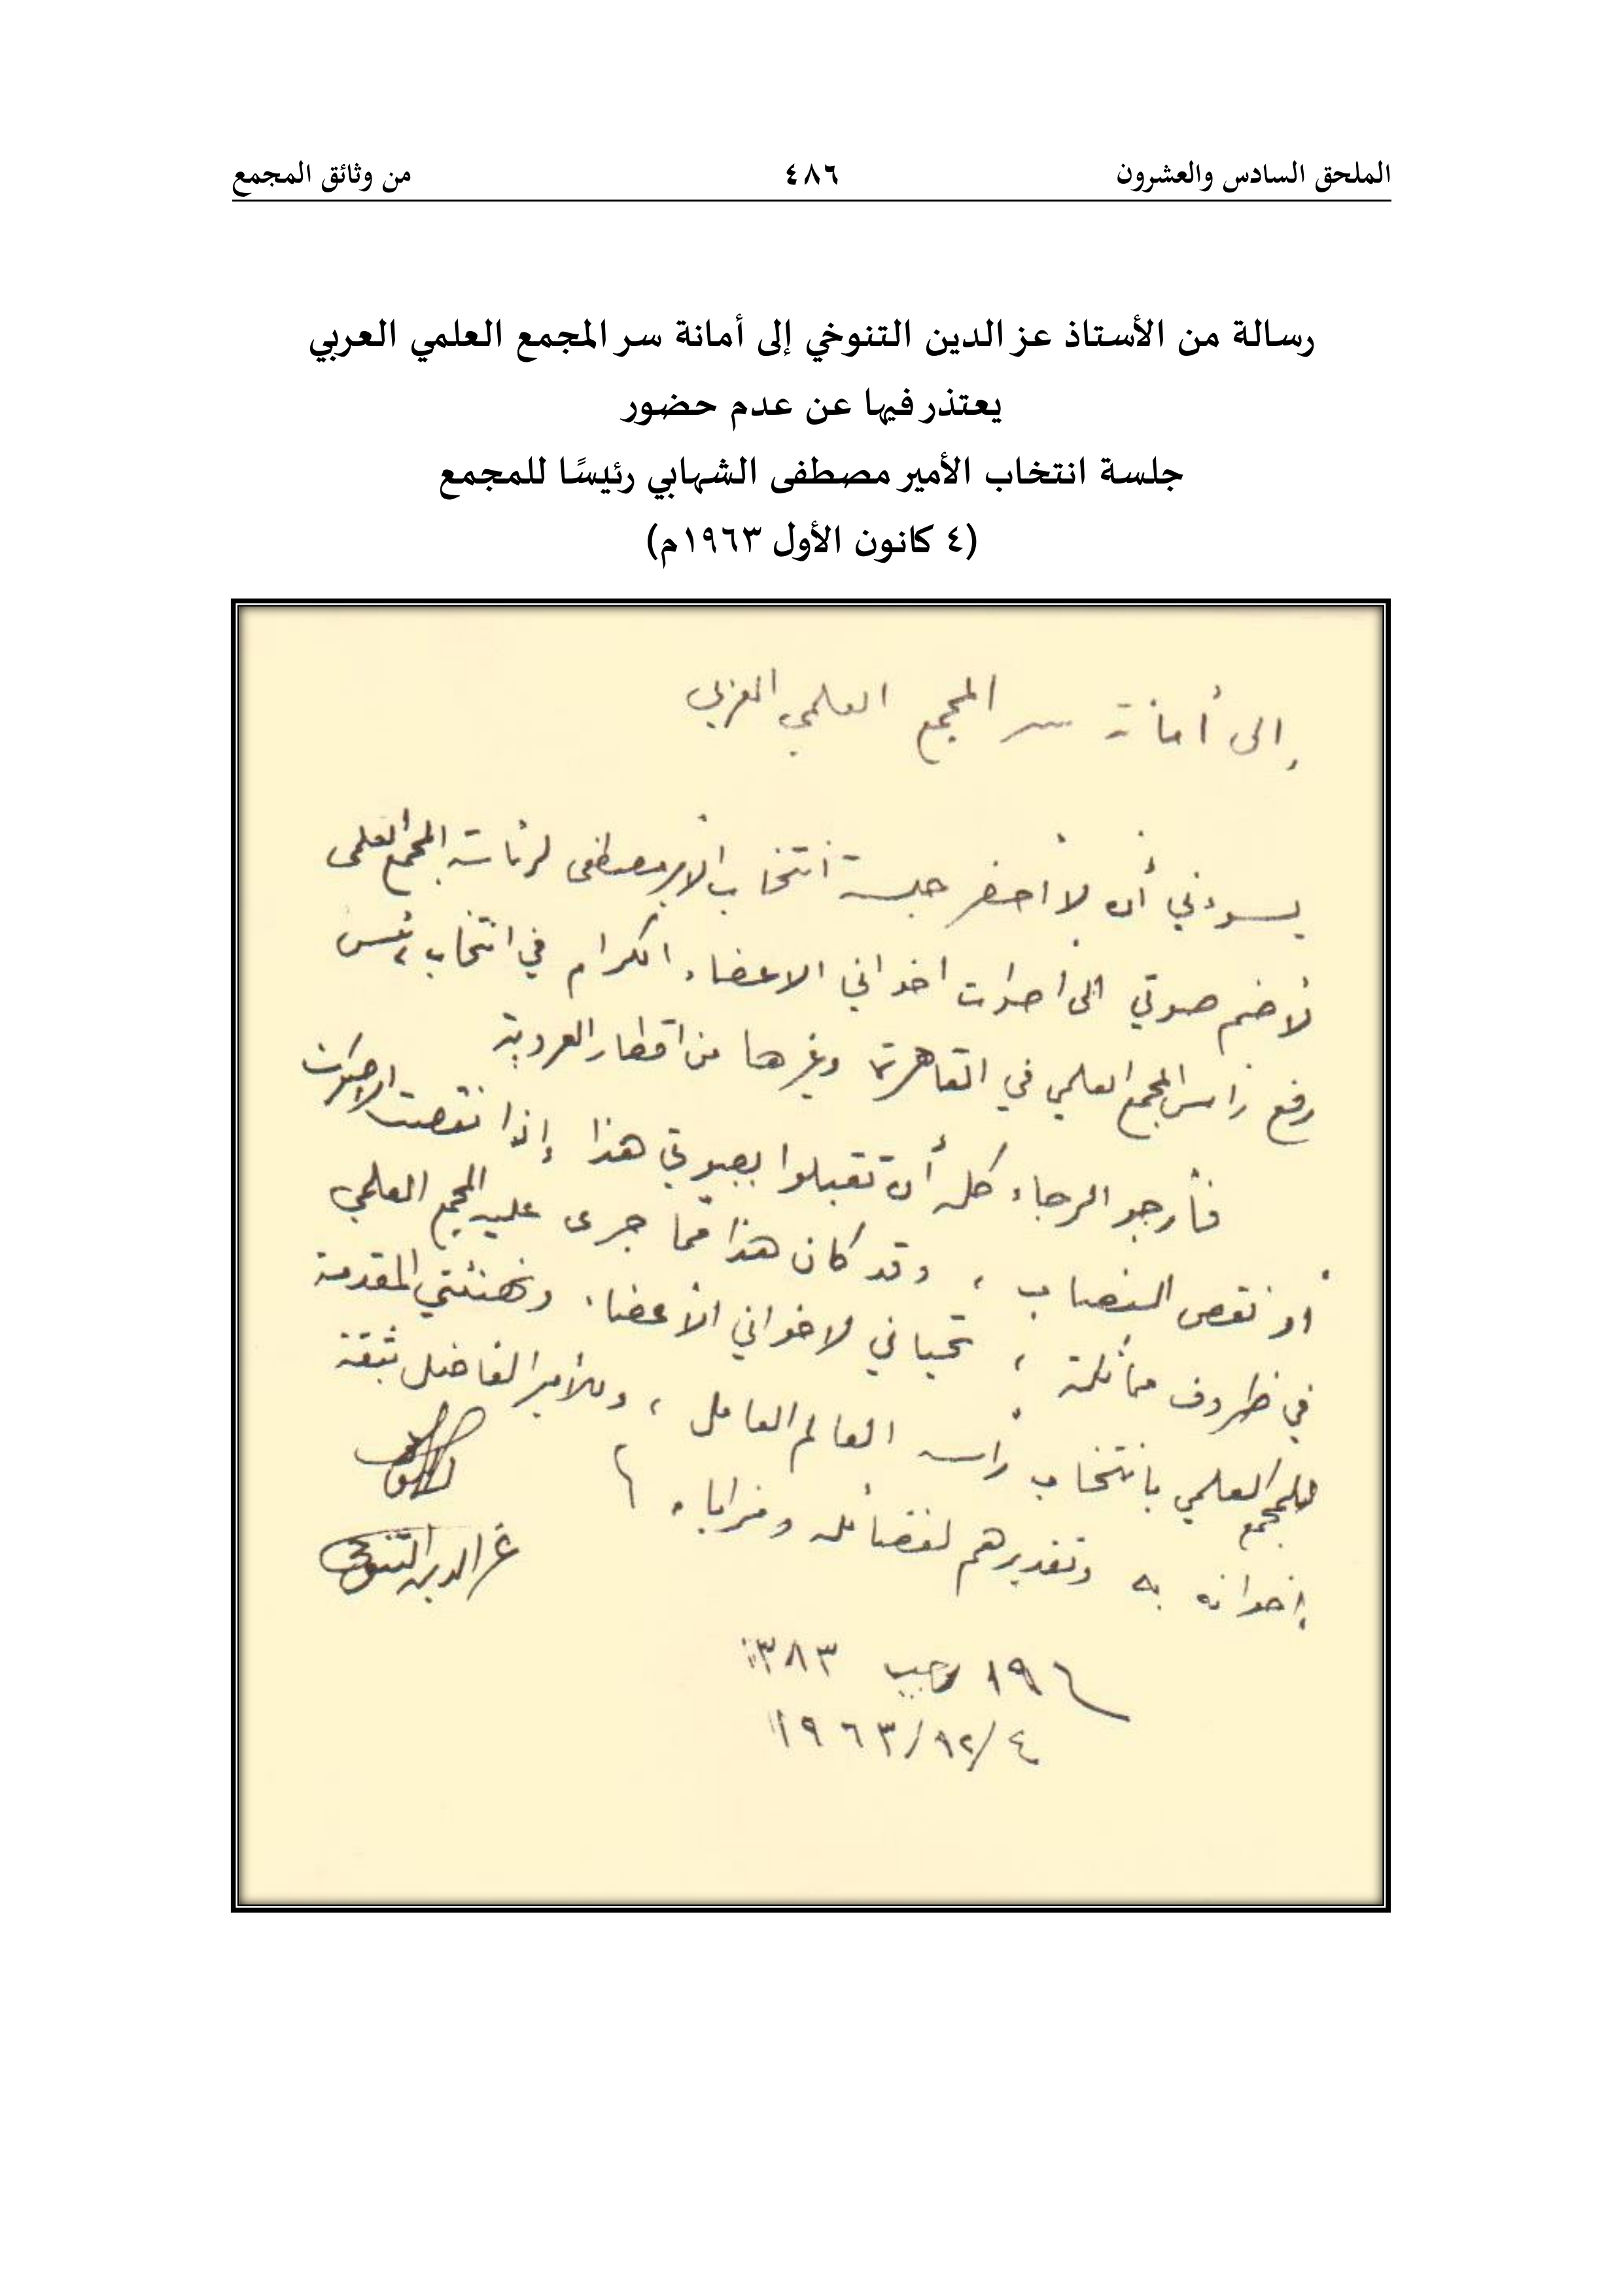 الملحق السادس والعشرون ٤٨٦ من وثائق المجمع
رسالة من الأستاذ عز الدين التنوخي إلى أمانة سر المجمع العلمي العربي
يعتذر فيها عن عدم حضور
جلسة انتخاب الأمير مصطفى الشهابي رئيسًا للمجمع
(٤ كانون الأول ١٩٦٣م)
إلى أمانة سر المجمع العلمي العربي
يسوءني أن لا أحضر جلسة انتخاب الأمير مصطفى لرئاسة المجمع العلمي
لأضم صوتي الى اصوات اخواني الاعضاء الكرام في انتخاب رئيس
رفع رأس المجمع العلمي في القاهرة وغيرها من اقطار العروبة
فأرجو الرجاء كله أن تقبلوا بصوتي هذا إذا نقصت الاصوات
أو نقص النصاب ، وقد كان هذا مما جرى عليه المجمع العلمي
في ظروف مماثلة ؛ تحياتي لاخواني الأعضاء وتهنئتي المقدمة
للمجمع العلمي بانتخاب رأسه العالم العامل ، وللأمير الفاضل بثقة
إخوانه به وتقديرهم لفضائله ومزاياه
عز الدين التنوخي
١٩ رجب ١٣٨٣
٤/١٢/١٩٦٣